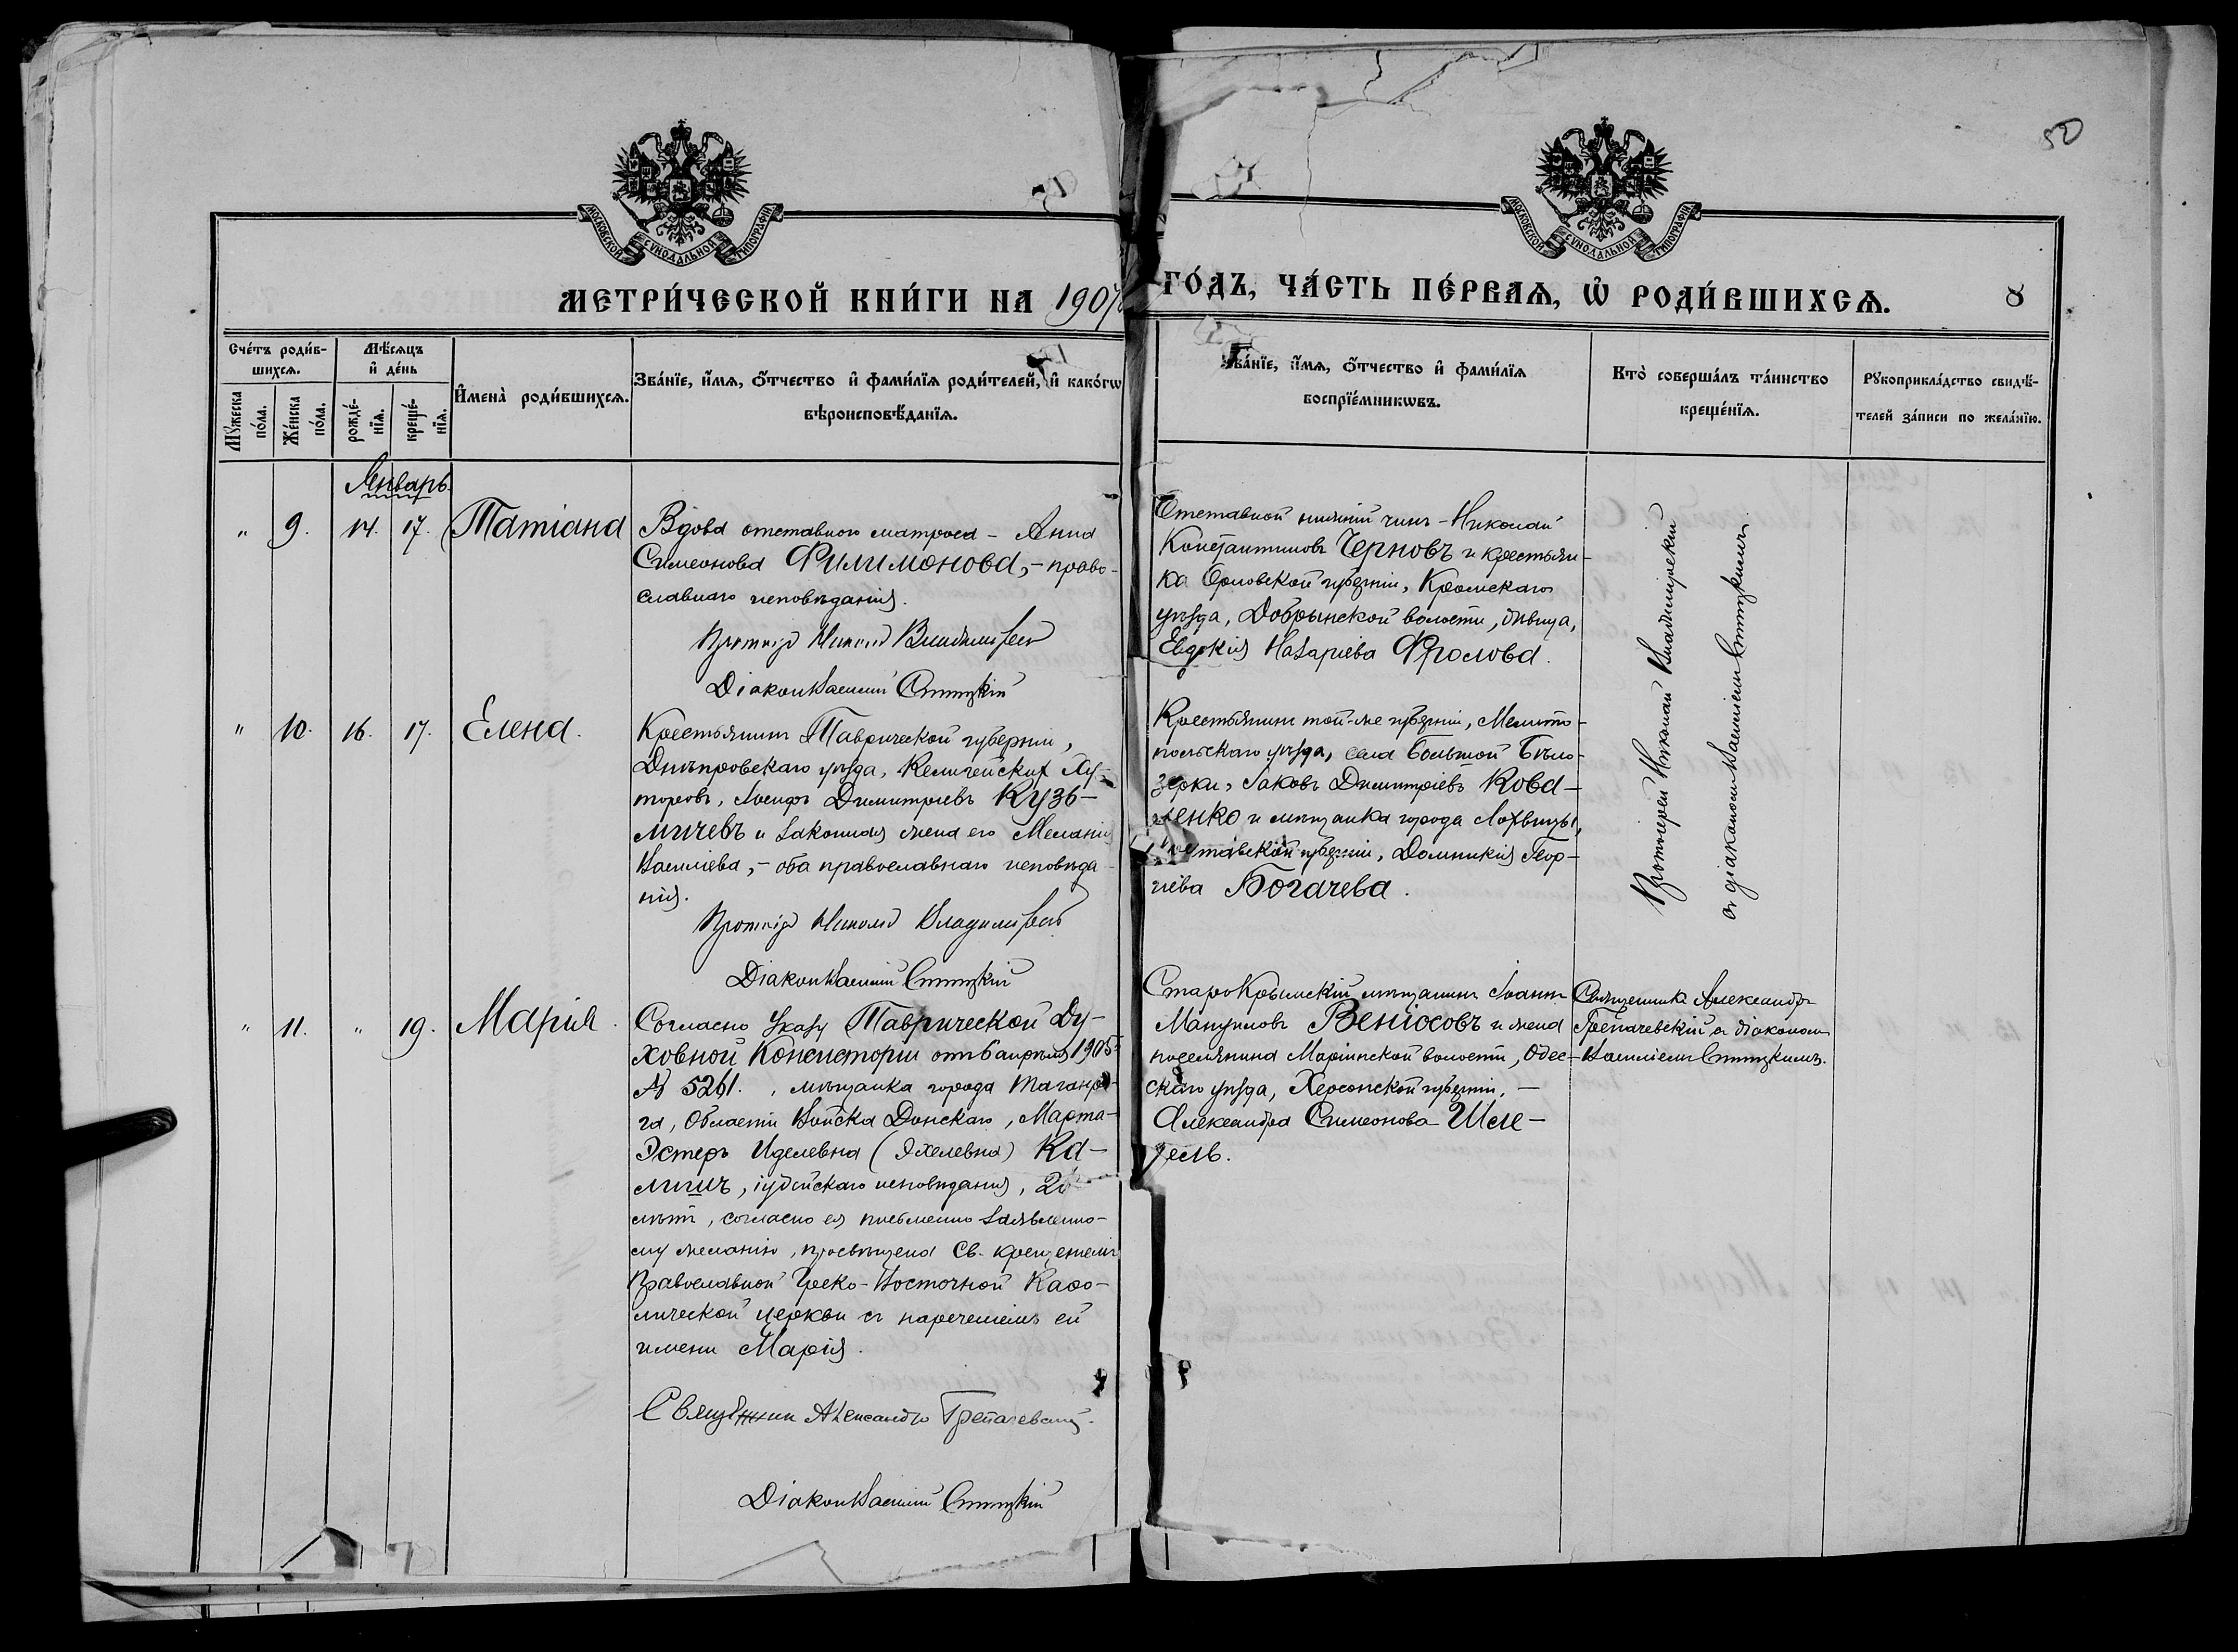 50
МОСКОВСКОЙ СѴНОДАЛЬНОЙ ТИПОГРАФІИ
МОСКОВСКОЙ СѴНОДАЛЬНОЙ ТИПОГРАФІИ
МЕТРИ́ЧЕСКОЙ КНИ́ГИ НА 1907
ГО́ДЪ, ЧА́СТЬ ПЕ́РВАѦ, Ѡ҆ РОДИ́ВШИХСѦ. 8
Сче́тъ роди́в-
шихсѧ.
Мꙋ́жеска
по́ла.
Же́нска
по́ла.
Мѣ́сѧцъ
и҆ де́нь
рожде́-
нїѧ.
креще́-
нїѧ.
И҆мена̀ роди́вшихсѧ.
Зва́нїе, и҆́мѧ, ѻ҆́тчество и҆ фами́лїѧ роди́телей, и҆ како́гѡ
вѣроисповѣ́данїѧ.
Зва́нїе, и҆́мѧ, ѻ҆́тчество и҆ фами́лїѧ
воспрїе́мникѡвъ.
Кто̀ соверша́лъ та́инство
креще́нїѧ.
Рꙋкоприкла́дство свидѣ́-
телей за́писи по жела́нїю.
Январь.
" 9. 14. 17. Татіана
Вдова отставного матроса – Анна
Симеонова Филимонова, – право-
славнаго исповѣданія.
Протоіер Николай Владимірскій
Діаконъ Василій Ступицкій
Отставной нижній чинъ – Николай
Константиновъ Черновъ и крестьян-
ка Орловской губерніи, Кромскаго
уѣзда, Добрынской волости, дѣвица,
Евдокія Назаріева Фролова.
Протоіерей Николай Владимірскій
съ діакономъ Василіемъ
" 10. 16. 17. Елена.
Крестьянинъ Таврической губерніи,
Днѣпровскаго уѣзда, Келигейскихъ Ху-
торовъ, Іосифъ Димитріевъ Кузь-
мичевъ и законная жена его Меланія
Василіева, – оба православнаго исповѣда-
нія.
Протоіер Николай Владимірскій
Діаконъ Василій
Крестьянинъ той-же губерніи, Мелито-
польскаго уѣзда, села Большой Бѣло-
зерки, Іаковъ Димитріевъ Кова-
ленко и мѣщанка города Лохвицы,
Полтавской губерніи, Домникія Геор-
гіева Богачева.
" 11. " 19. Марія.
Согласно Указу Таврической Ду-
ховной Консисторіи отъ 6 апрѣля 1905 г.
№ 5261., мѣщанка города Таганро-
га, Области Войска Донскаго, Марта-
Эстеръ Иделевна (Эхелевна) Ка-
лишъ, іудейскаго исповѣданія,
лѣтъ, согласно ея письменно заявленно-
му желанію, просвѣщена Св. крещеніемъ
Православной Греко-Восточной Каѳо-
лической церкви съ нареченіемъ ей
имени Марія.
Священник Александр Грепачевский.
Діаконъ Василій
Старо Крымскій мѣщанинъ Іоаннъ
Мануиловъ Веніосовъ и жена
поселянина Маріинской волости, Одес-
скаго уѣзда, Херсонской губерніи, –
Александра Симеонова
Священникъ Александръ
Грепачевскій съ діакономъ
Василіемъ